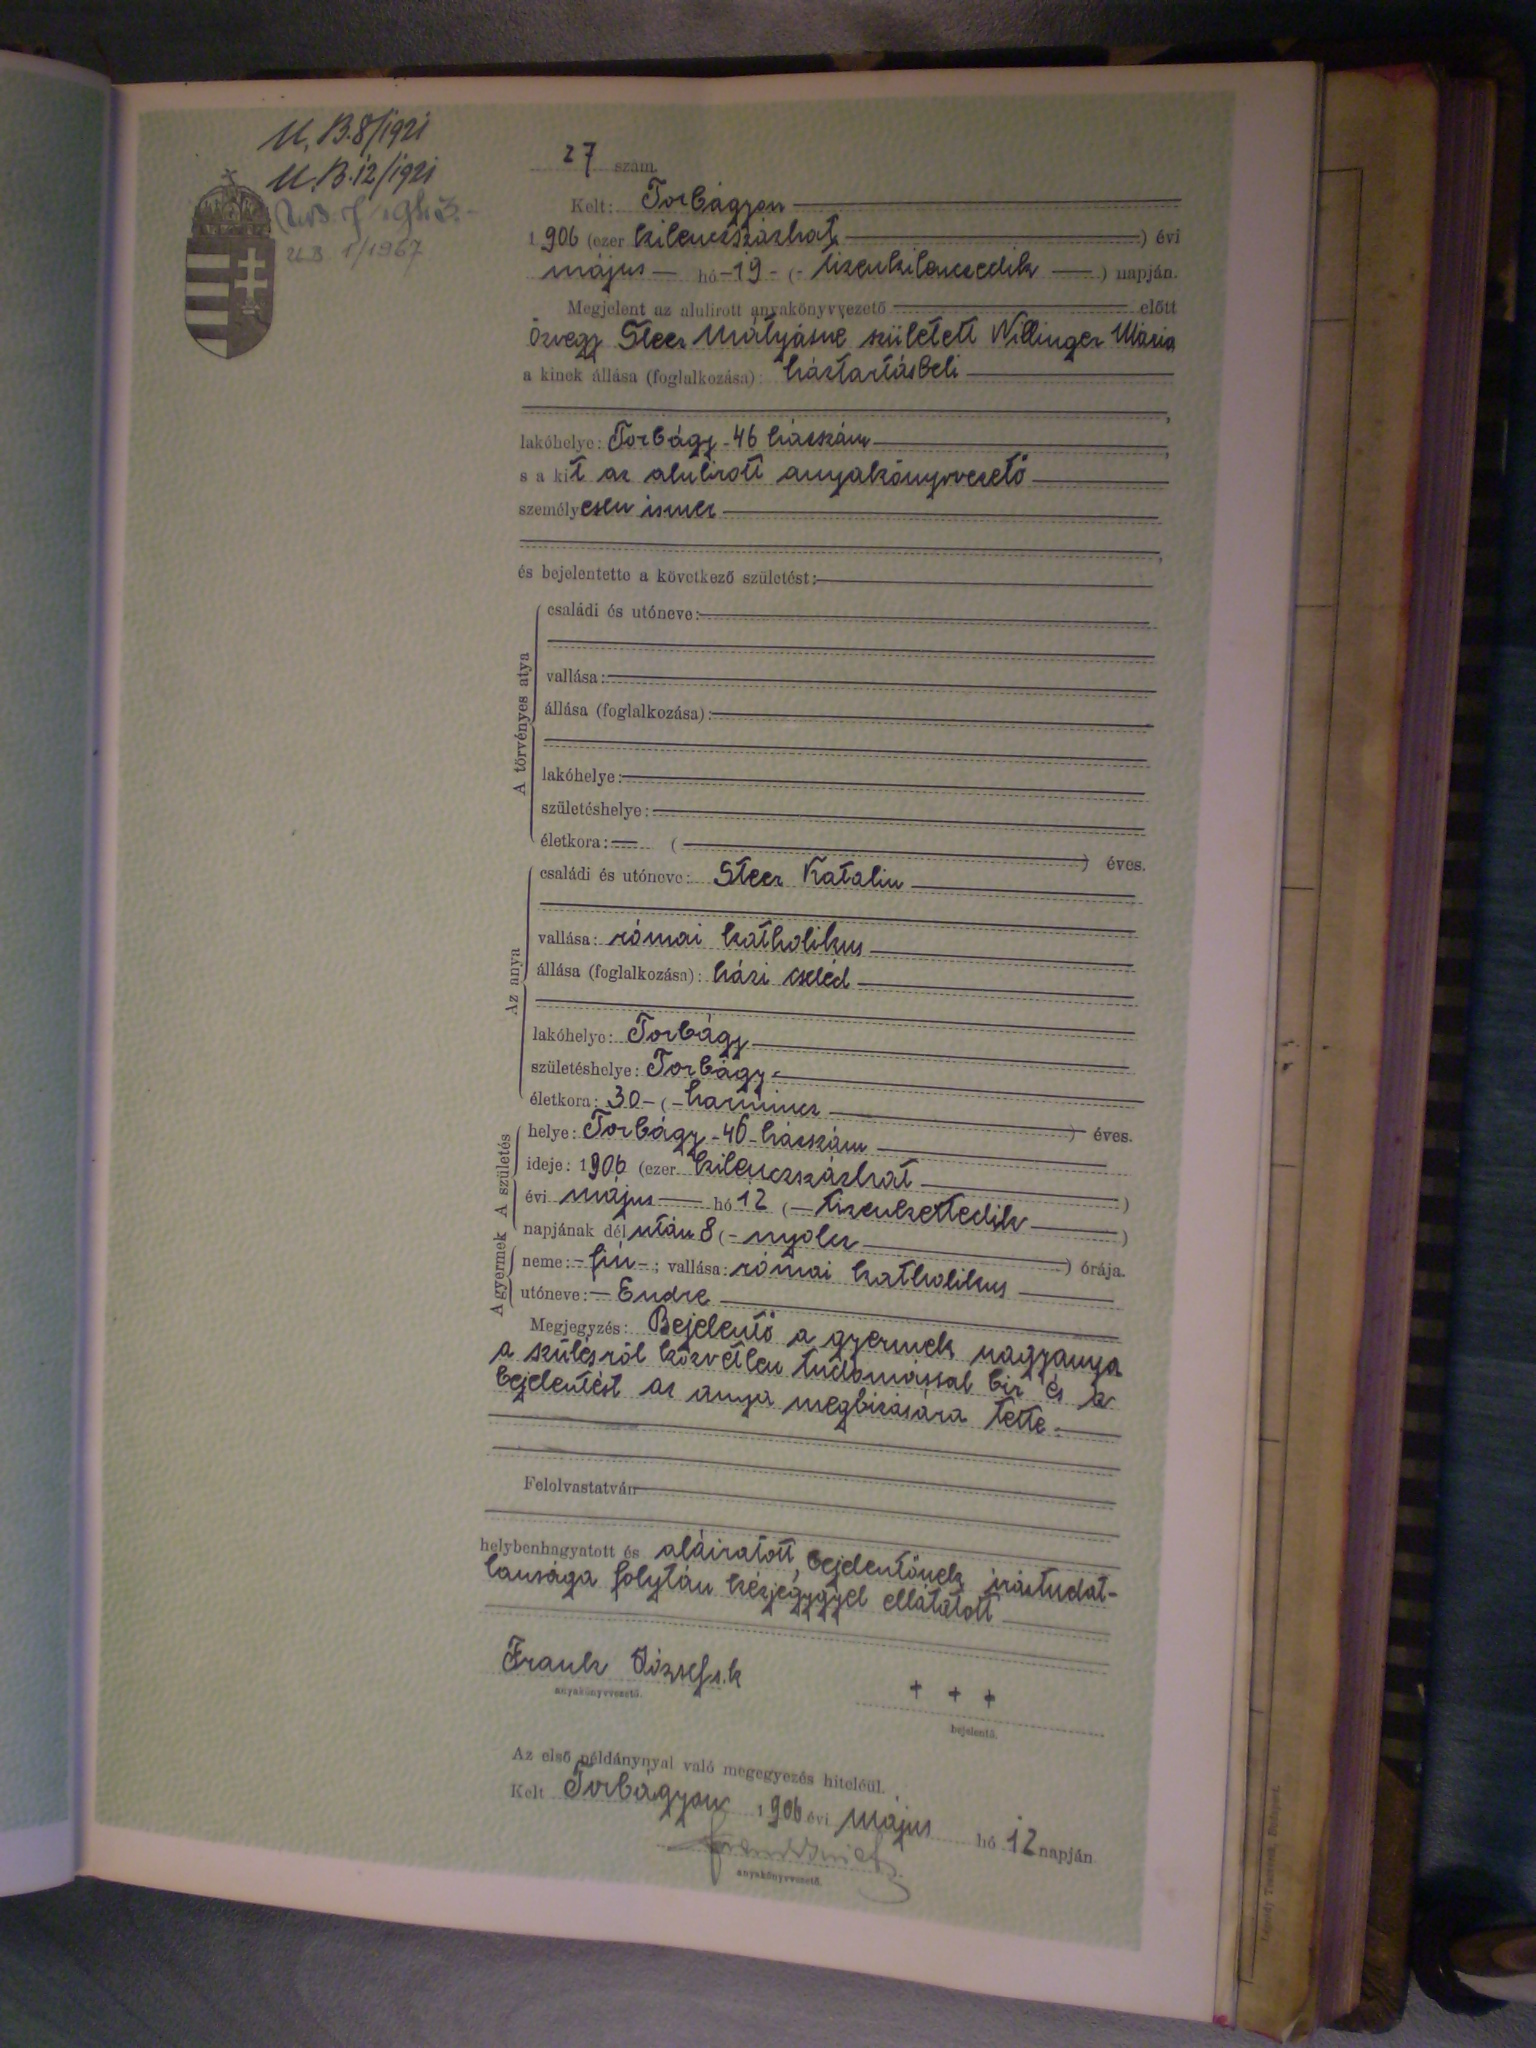 U. B. 8/1921
U. B. 12/1921
U.B. 1/1967
27 szám.
Kelt: Torbágyon
1906 (ezer kilenczszázhat) évi
május hó 19 - (- tizenkilenczedik) napján.
Megjelent az alulirott anyakönyvvezető előtt
özvegy Steer Mátyásné született Willinger Mária
a kinek állása (foglalkozása): háztartásbeli
,
lakóhelye: Torbágy - 46 házszám,
s a kit az alulirott anyakönyvvezető
személyesen ismer
,
és bejelentette a következő születést:
A törvényes atya
családi és utóneve:
vallása:
állása (foglalkozása):
lakóhelye:
születéshelye:
életkora: ( ) éves.
Az anya
családi és utóneve: Steer Katalin
vallása: római katholikus
állása (foglalkozása): házi cseléd
lakóhelye: Torbágy
születéshelye: Torbágy
életkora: 30 - (- harmincz) éves.
A születés
helye: Torbágy - 46 - házszám
ideje: 1906 (ezer kilenczszázhat)
évi május hó 12 (- tizenkettedik)
napjának délután 8 (- nyolcz) órája.
A gyermek
neme: - fiú -; vallása: római katholikus
utóneve: - Endre
Megjegyzés: Bejelentő a gyermek nagyanya
a szülésről közvetlen tudomással bir és a
bejelentést az anya megbizására tette.
Felolvastatván
helybenhagyatott és aláiratott, bejelentőnek irástudat-
lansága folytán kézjegygyel ellátatott
Frank József s.k
anyakönyvvezető.
+ + +
bejelentő.
Az első példánynyal való megegyezés hiteléül.
Kelt Torbágyon 1906 évi május hó 12 napján
anyakönyvvezető.